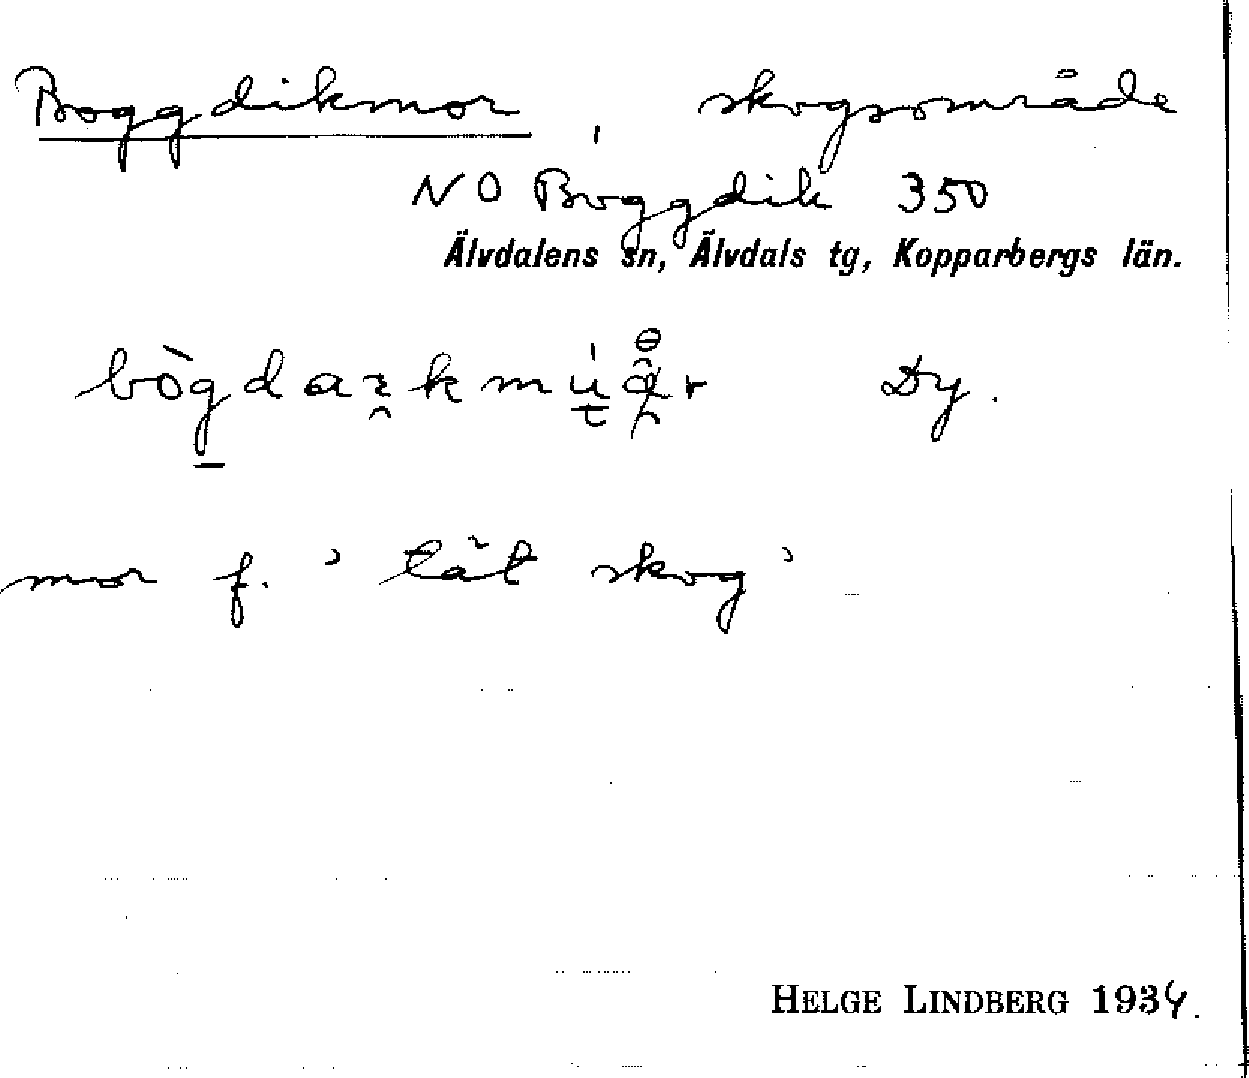 Boggdikmor, skogsområde
NO Boggdik 350
Älvdalens sn, Älvdals tg, Kopparbergs län.
Dy.
mor f. 'tät skog'
HELGE LINDBERG 1934.